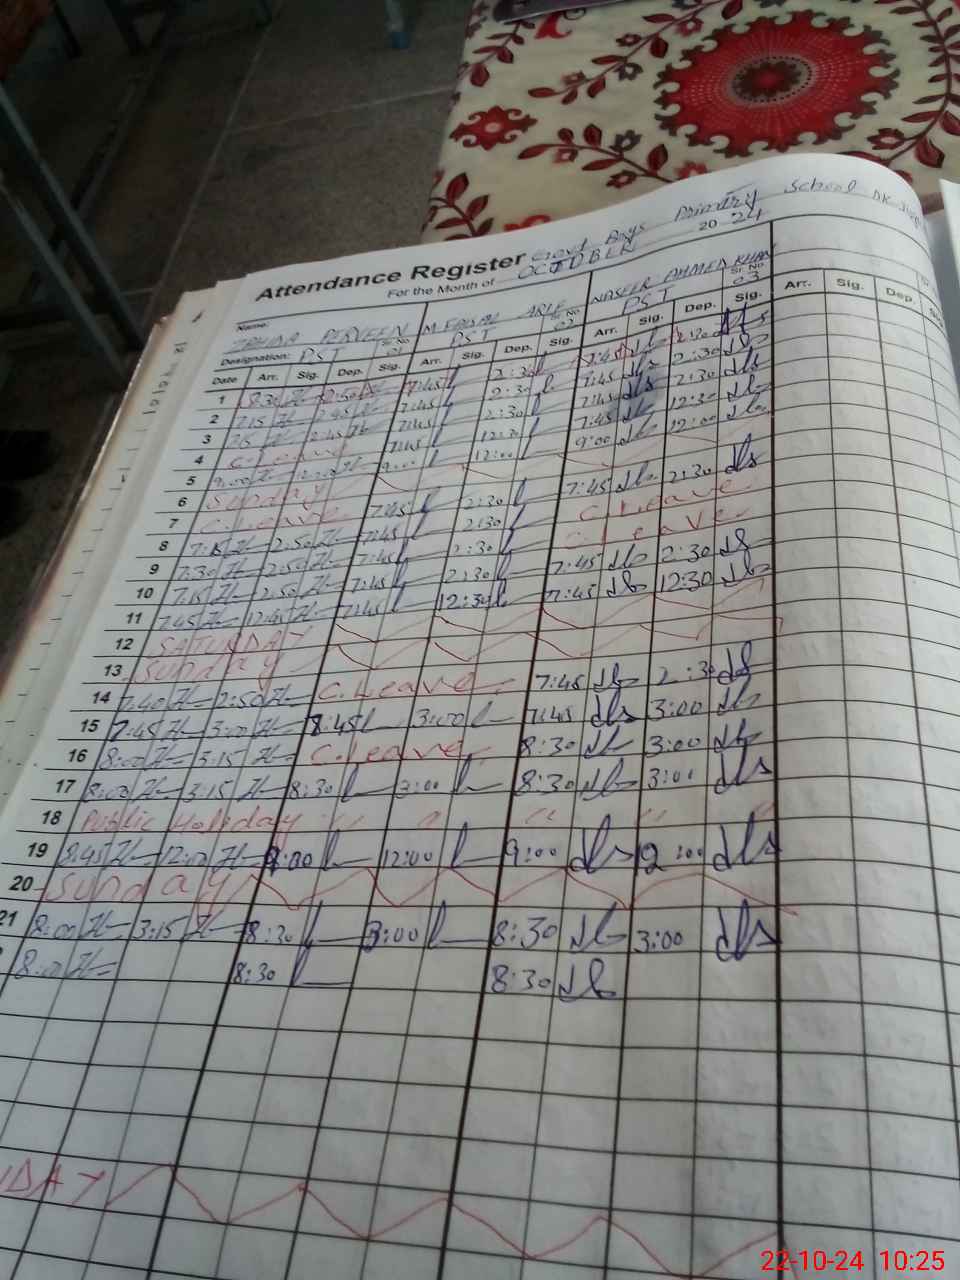 Attendance Register Govt Boys Primary School
For the Month of OCTOBER 20 24
Name: PERVEEN M FAISAL ARIF NASEER AHMED KHAN
Designation: PST Sr. No. 01 PST Sr. No. 02 PST Sr. No. 03
Date Arr. Sig. Dep. Sig. Arr. Sig. Dep. Sig. Arr. Sig. Dep. Sig. Arr. Sig. Dep.
1 8:30 2:50 7:45 2:30 7:45 2:30
2 7:15 2:45 7:45 2:30 7:45 2:30
3 2:45 7:45 2:30 7:45 2:30
4 C.Leave 7:45 12:30 7:45 12:30
5 9:00 12:00 9:00 12:00 9:00 12:00
6 Sunday
7 C.Leave 7:45 2:30 7:45 2:30
8 7:15 2:50 7:45 2:30 C.Leave
9 7:30 2:50 7:45 2:30 C.Leave
10 7:15 2:50 7:45 2:30 7:45 2:30
11 7:45 12:45 7:45 12:30 7:45 12:30
12 SATURDAY
13 Sunday
14 7:40 2:50 C.Leave 7:45 2:30
15 7:45 3:00 8:45 3:00 7:45 3:00
16 8:00 3:15 C.Leave 8:30 3:00
17 8:00 3:15 8:30 3:00 8:30 3:00
18 Public Holiday
19 8:45 12:00 9:00 12:00 9:00 12:00
20 Sunday
21 8:00 3:15 8:30 3:00 8:30 3:00
8:00 8:30 8:30
NDAY
22-10-24 10:25